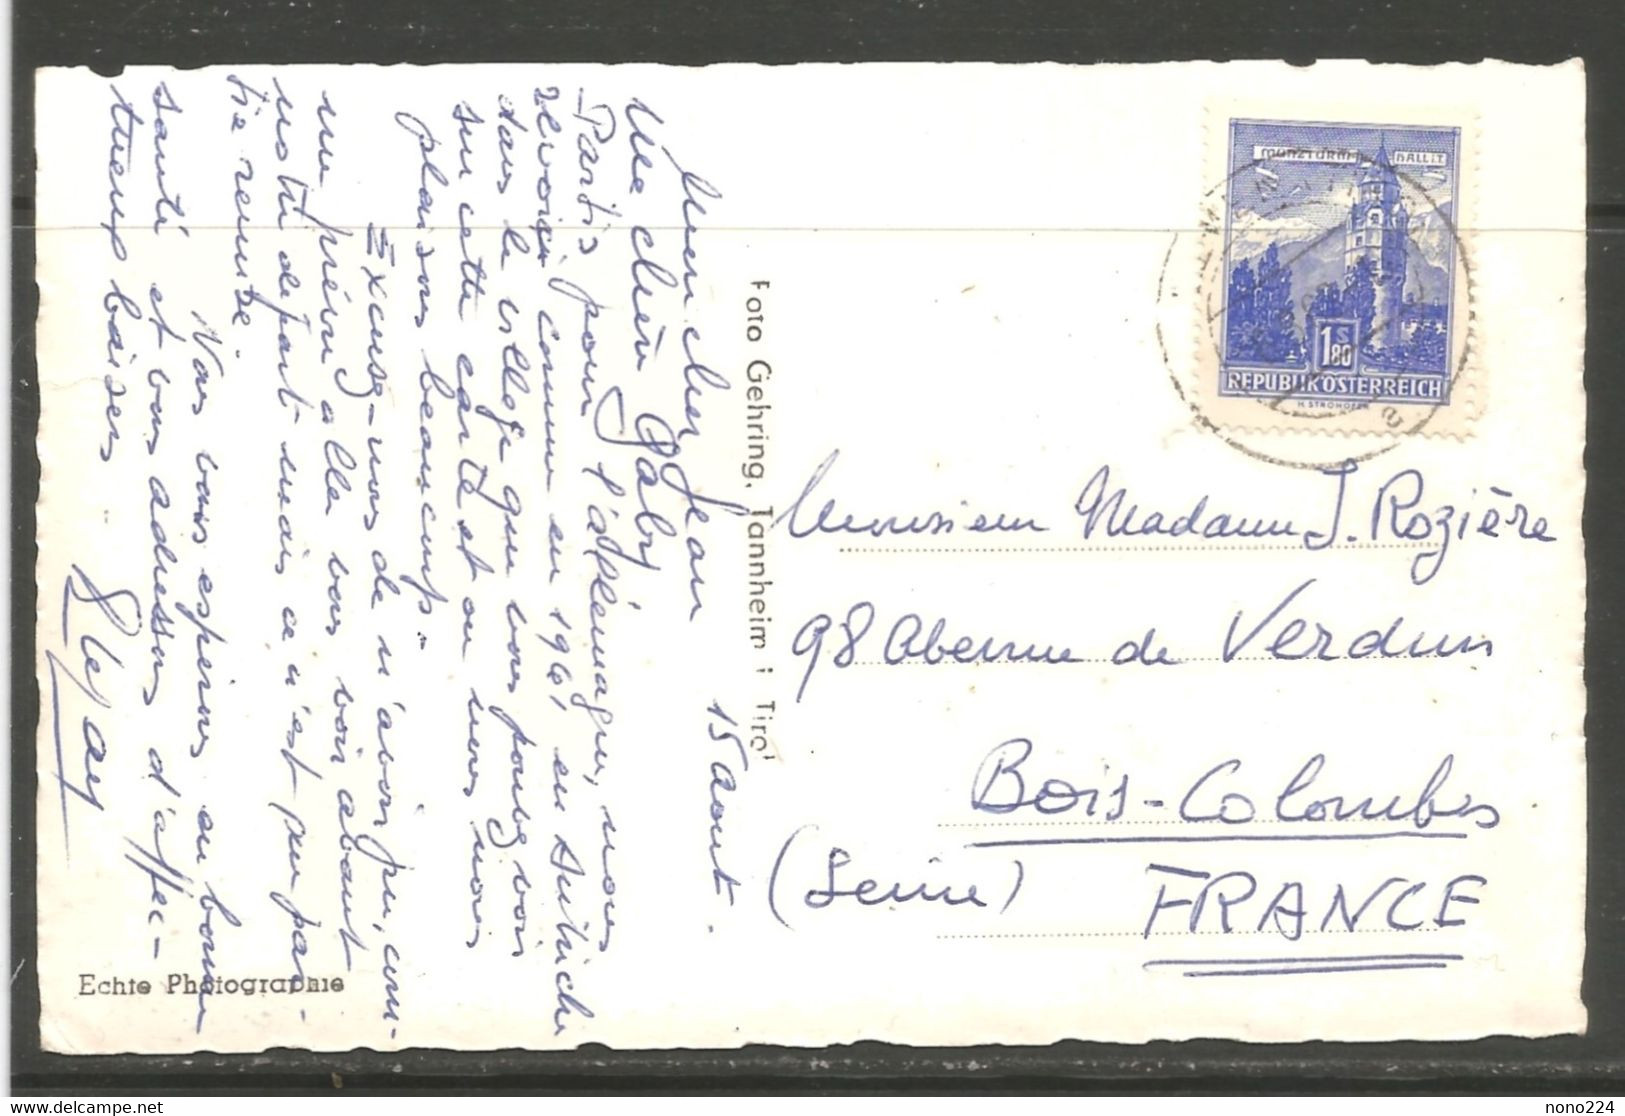 15 août.
Mon cher Jean
Ma chère Gaby
Partis pour l'allemagne, nous
revoici comme en 1961 en autriche
dans le village que vous pouvez voir
sur cette carte et où nous nous
plaisons beaucoup.
Excusez-nous de n'avoir pu, com-
me prévu aller vous voir avant
notre départ mais ce n'est que par-
tie remise.
Nous vous espérons en bonne
santé et vous adressons d'affec-
tueux baisers
Echte Photographie
Foto Gehring, Tannheim i Tirol
MÜNZTURM HALL i.T.
1.80 S
REPUBLIK ÖSTERREICH
H. STROHOFER
Monsieur Madame J. Rozière
98 Avenue de Verdun
Bois-Colombes
(Seine) FRANCE
nono224